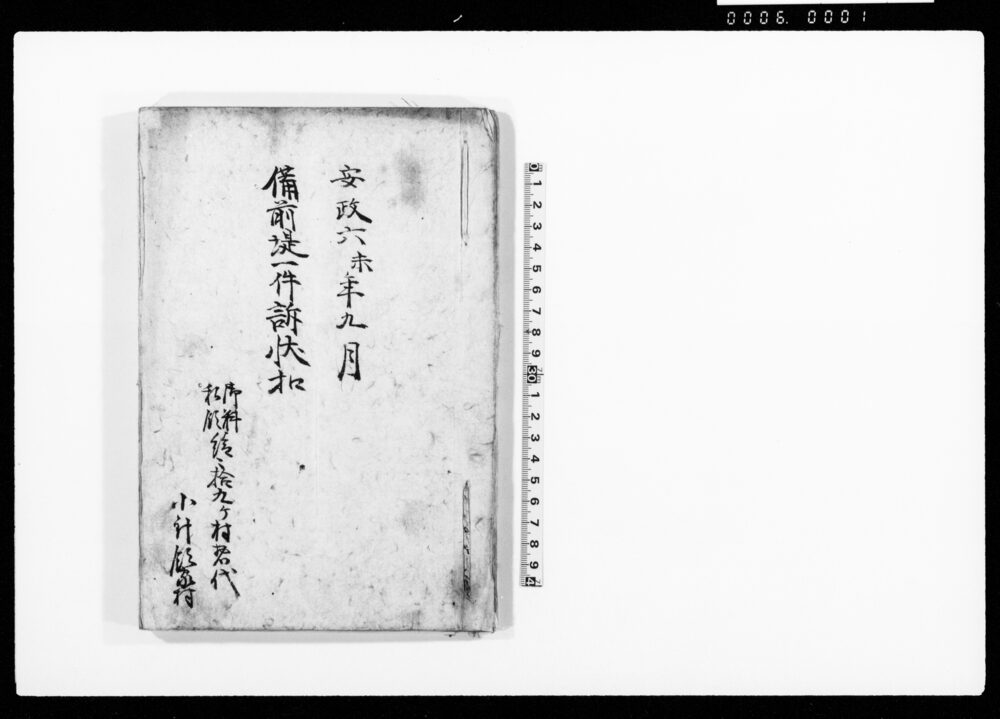 0006. 0001
安政六未年九月
備前堤一件訴状扣
御料
私領
拾九ヶ村惣代
小針領家村
0 1 2 3 4 5 6 7 8 9 30 1 2 3 4 5 6 7 8 9 4